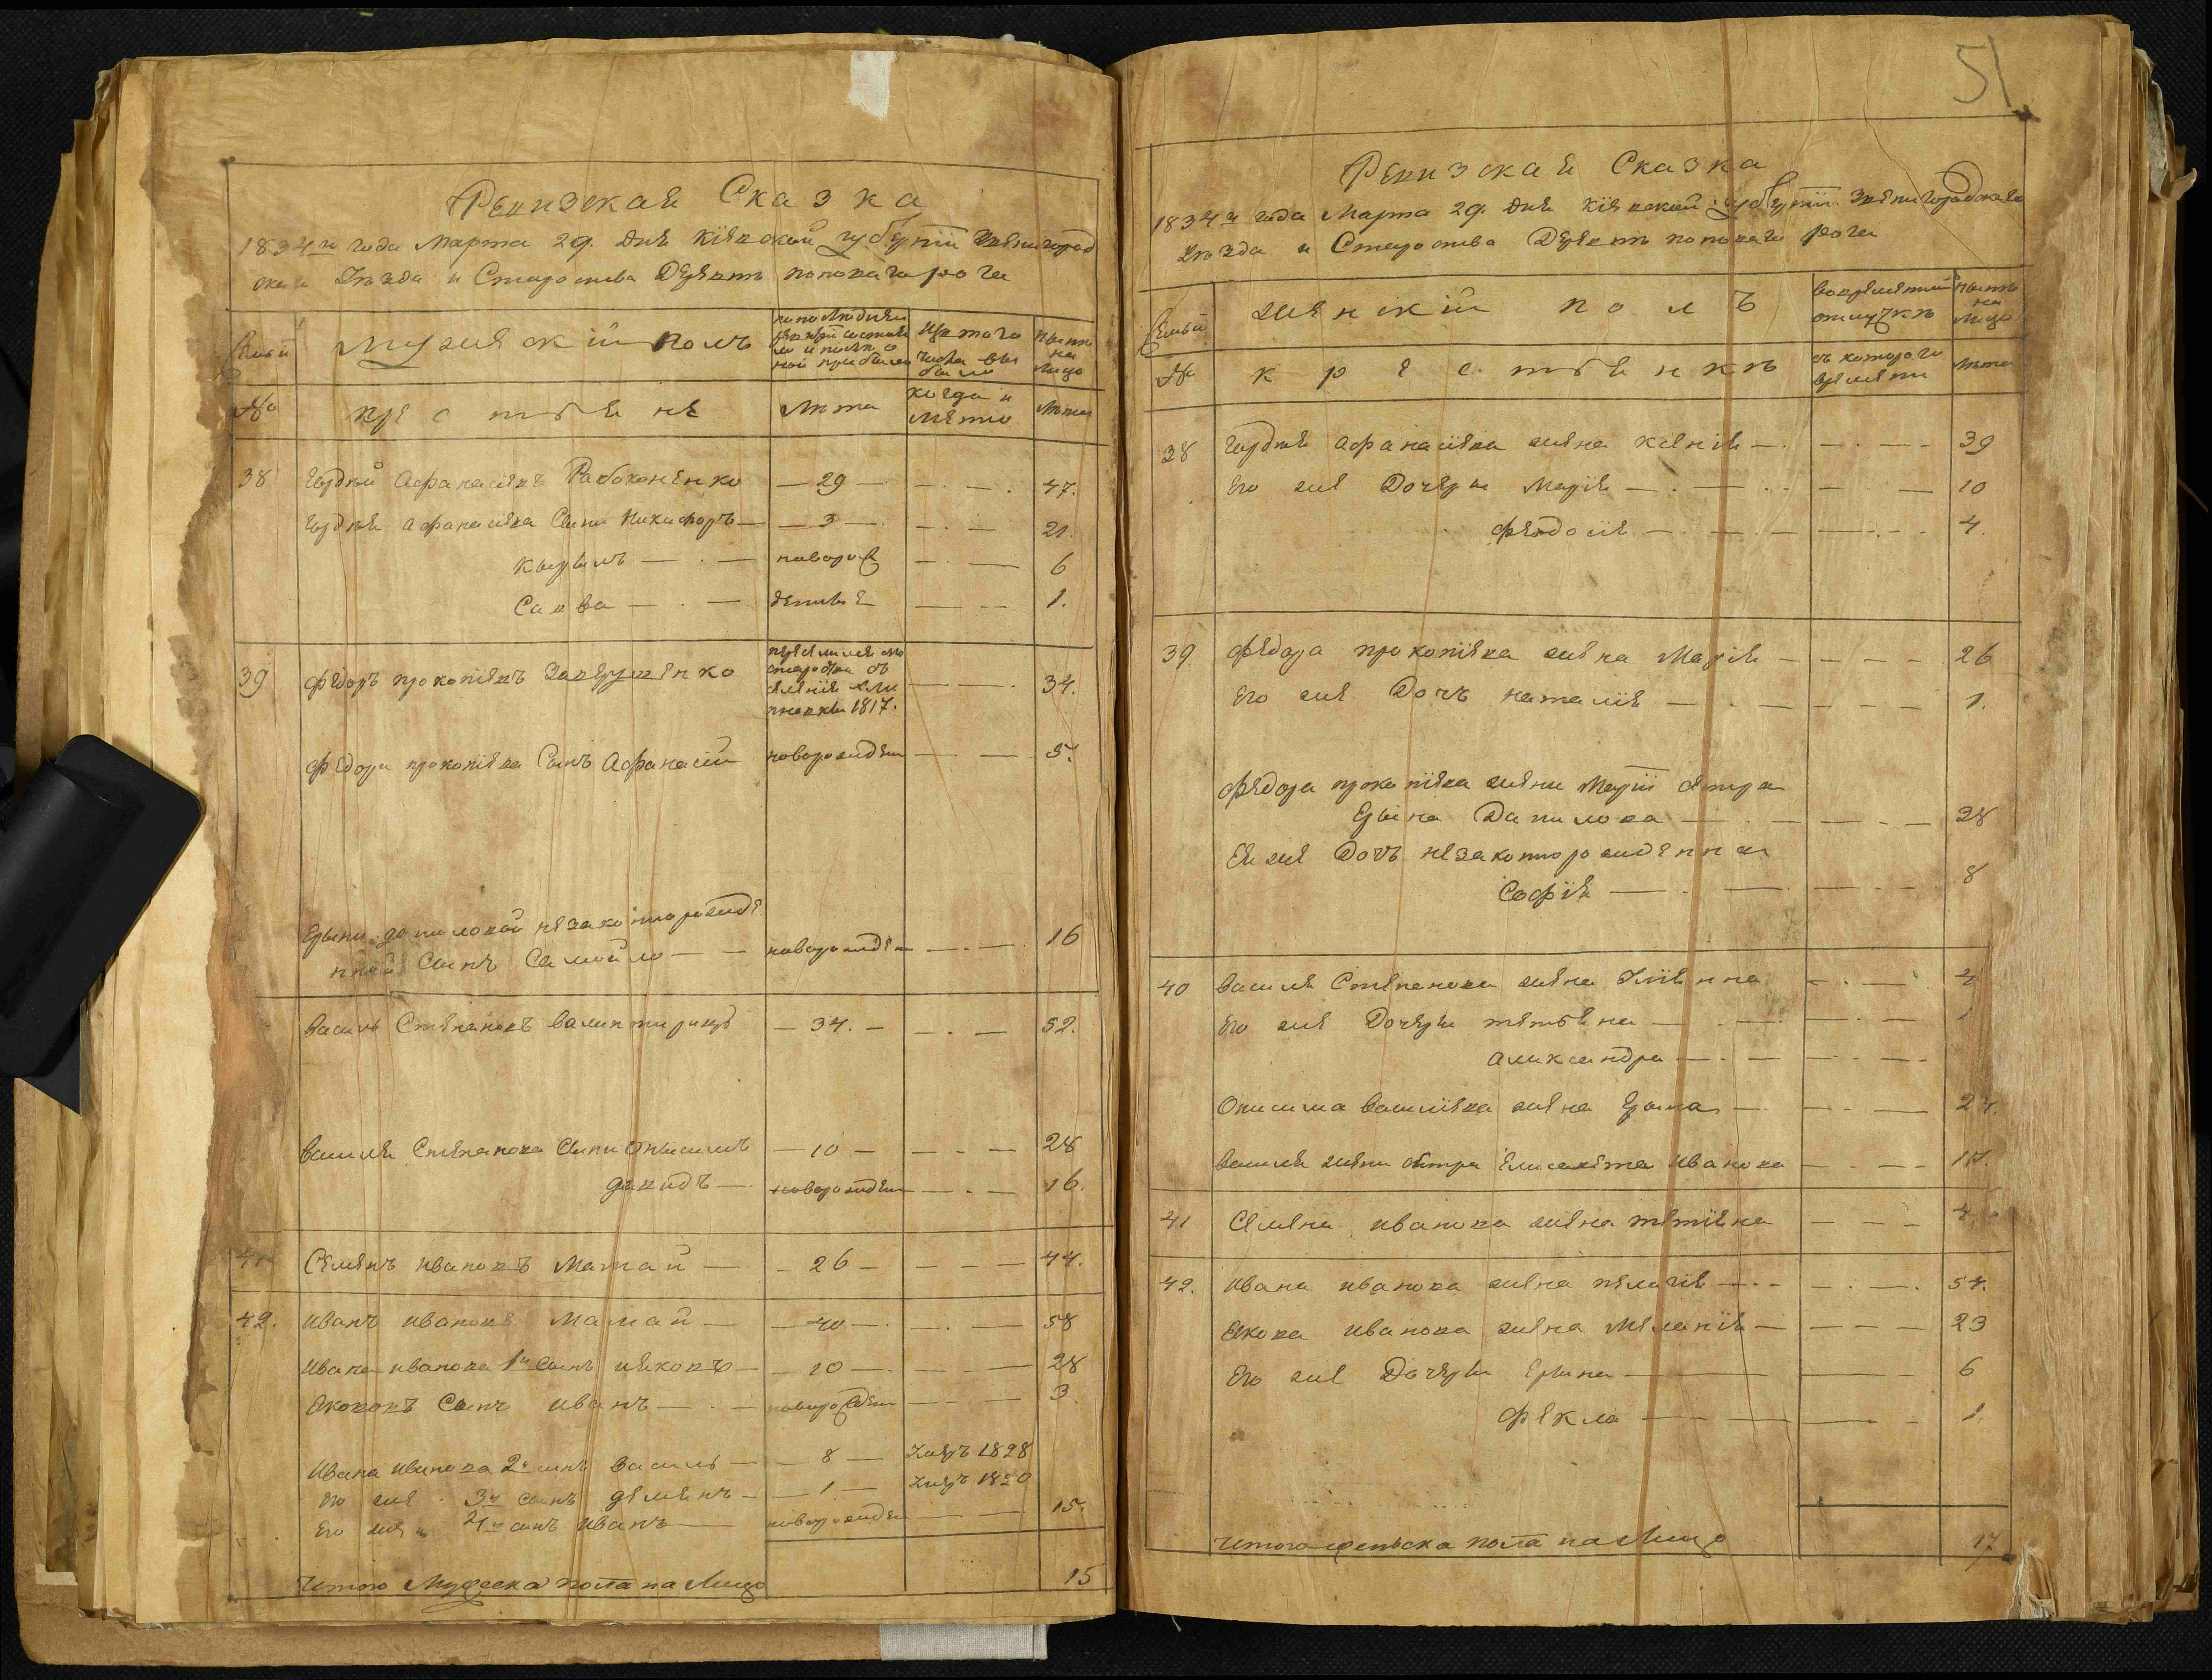 Ревизская Сказка
1834го года Марта 29. Дня Кіевской губерніи Звенигород
скаго Уѣзда и Староства Деревни поповаго рога
Семьи
Мужескій полъ
по последней ревизіи состояло и после оной прибыло
Изъ того числа выбыло
Ныне на лицо
№
крестьяне
Лѣта
когда и
именно
Лѣта
38 Гордѣй Афанасіевъ Рабоконенко — 29 — — 47.
Гордѣя Афанасіева Сыны Никифоръ — 3 — — 21.
Кырылъ — новоро — 6
Савва — денные — 1.
39 Федоръ прокопіевъ Заверушенко
1817. — 34.
Федора прокопіева Сынъ Афанасій новорожден — 5.
Ерыны даниловой незаконнорожде
нной Сынъ Самойло — новорожден — 16
Василь Степановъ — 34. — — 52.
Василя Степанова Сыны Онысымъ — 10 — — 28
давидъ — новорожден — 16.
41 Семенъ Ивановъ Мамай — 26 — — 44.
42. Иванъ Ивановъ Мамай — 40 — — 58
Ивана Иванова 1й Сынъ Яковъ — 10 — — 28
Яковъ Сынъ Иванъ — новорожден — 3
Ивана Иванова 2й сынъ Василь — 8 — Умеръ 1828
Его же 3й сынъ Деменъ — 1 — Умеръ
Его же 4й сынъ Иванъ — новорожден — 15.
Итого Мужеска пола на Лицо 15
51
Ревизская Сказка
1834го года Марта 29. Дня Кіевской губерніи Звенигородскаго
Уѣзда и Староства Деревни поповаго рога
Семьи
Женскій полъ
во временной
отлучкѣ
Ныне
на
лицо
№
крестьянкѣ
съ котораго
времени
Лѣта
38 Гордѣя Афанасіева жена Ксенія — 39
Его же Дочери Марія — 10
Феодосія — 4.
39. Федора прокопіева жена Марія — 26
Его же Дочъ наталія — 1.
Федора прокопіева жены Маріи сестра
Ерына Данилова — 28
Ея же Дочъ незаконнорожденная
Софія — 8
40 Василя Степанова жена Уліянна — 4
Его же Дочери тетяна —
Александра —
Онисима Василіева жена Ерына — 24.
Василя жены сестра Елисавета Иванова — 17.
41 Семена Иванова жена тетіяна — 4
42. Ивана Иванова жена пелагія — 54.
Якова Иванова жена Меланія — 23
Его же Дочери Ерина — 6
Фекла — 1.
Итого женска пола на Лицо 17